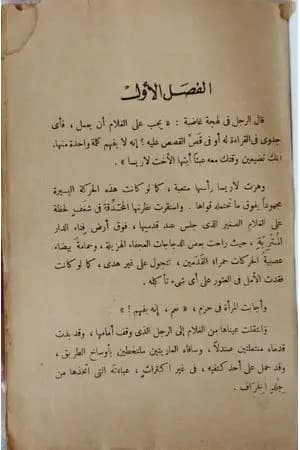 الفصل الأول
قال الرجل فى لهجة غاضبة : « يجب على الغلام أن يعمل ، فأى
جدوى فى القراءة له أو فى قصّ القصص عليه ؟ إنه لا يفهم كلمة واحدة منها.
إنك تضيعين وقتك معه عبثاً أيتها الأخت لاريسا » .
وهزت لاريسا رأسها متعبة ، كما لو كانت هذه الحركة اليسيرة
مجهوداً يفوق ما تحتمله قواها . واستقرت نظرتها المحدّقة فى شغف لحظة
على الغلام الصغير الذى جلس عند قدميها ، فوق أرض فناء الدار
المُتْرِبَةِ ، حيث راحت بعض الدجاجات العجفاء الهزيلة ، وحمامة بيضاء
عصبية الحركات حمراء القدّمين ، تتجول على غير هدى ، كما لو كانت
فقدت الأمل فى العثور على أى شىء تأكله .
وأجابت المرأة فى حزم ، « نعم ، إنه يفهم ! »
وانتقلت عيناها من الغلام إلى الرجل الذى وقف أمامها ، وقد بدت
قدماه منتعلتين صندلاً ، وساقاه العاريتين ملتخطين بأوساخ الطريق ،
وقد حمل على أحد كتفيه ، فى غير اكتراث ، عباءته التى اتخذها من
جلد الخراف .